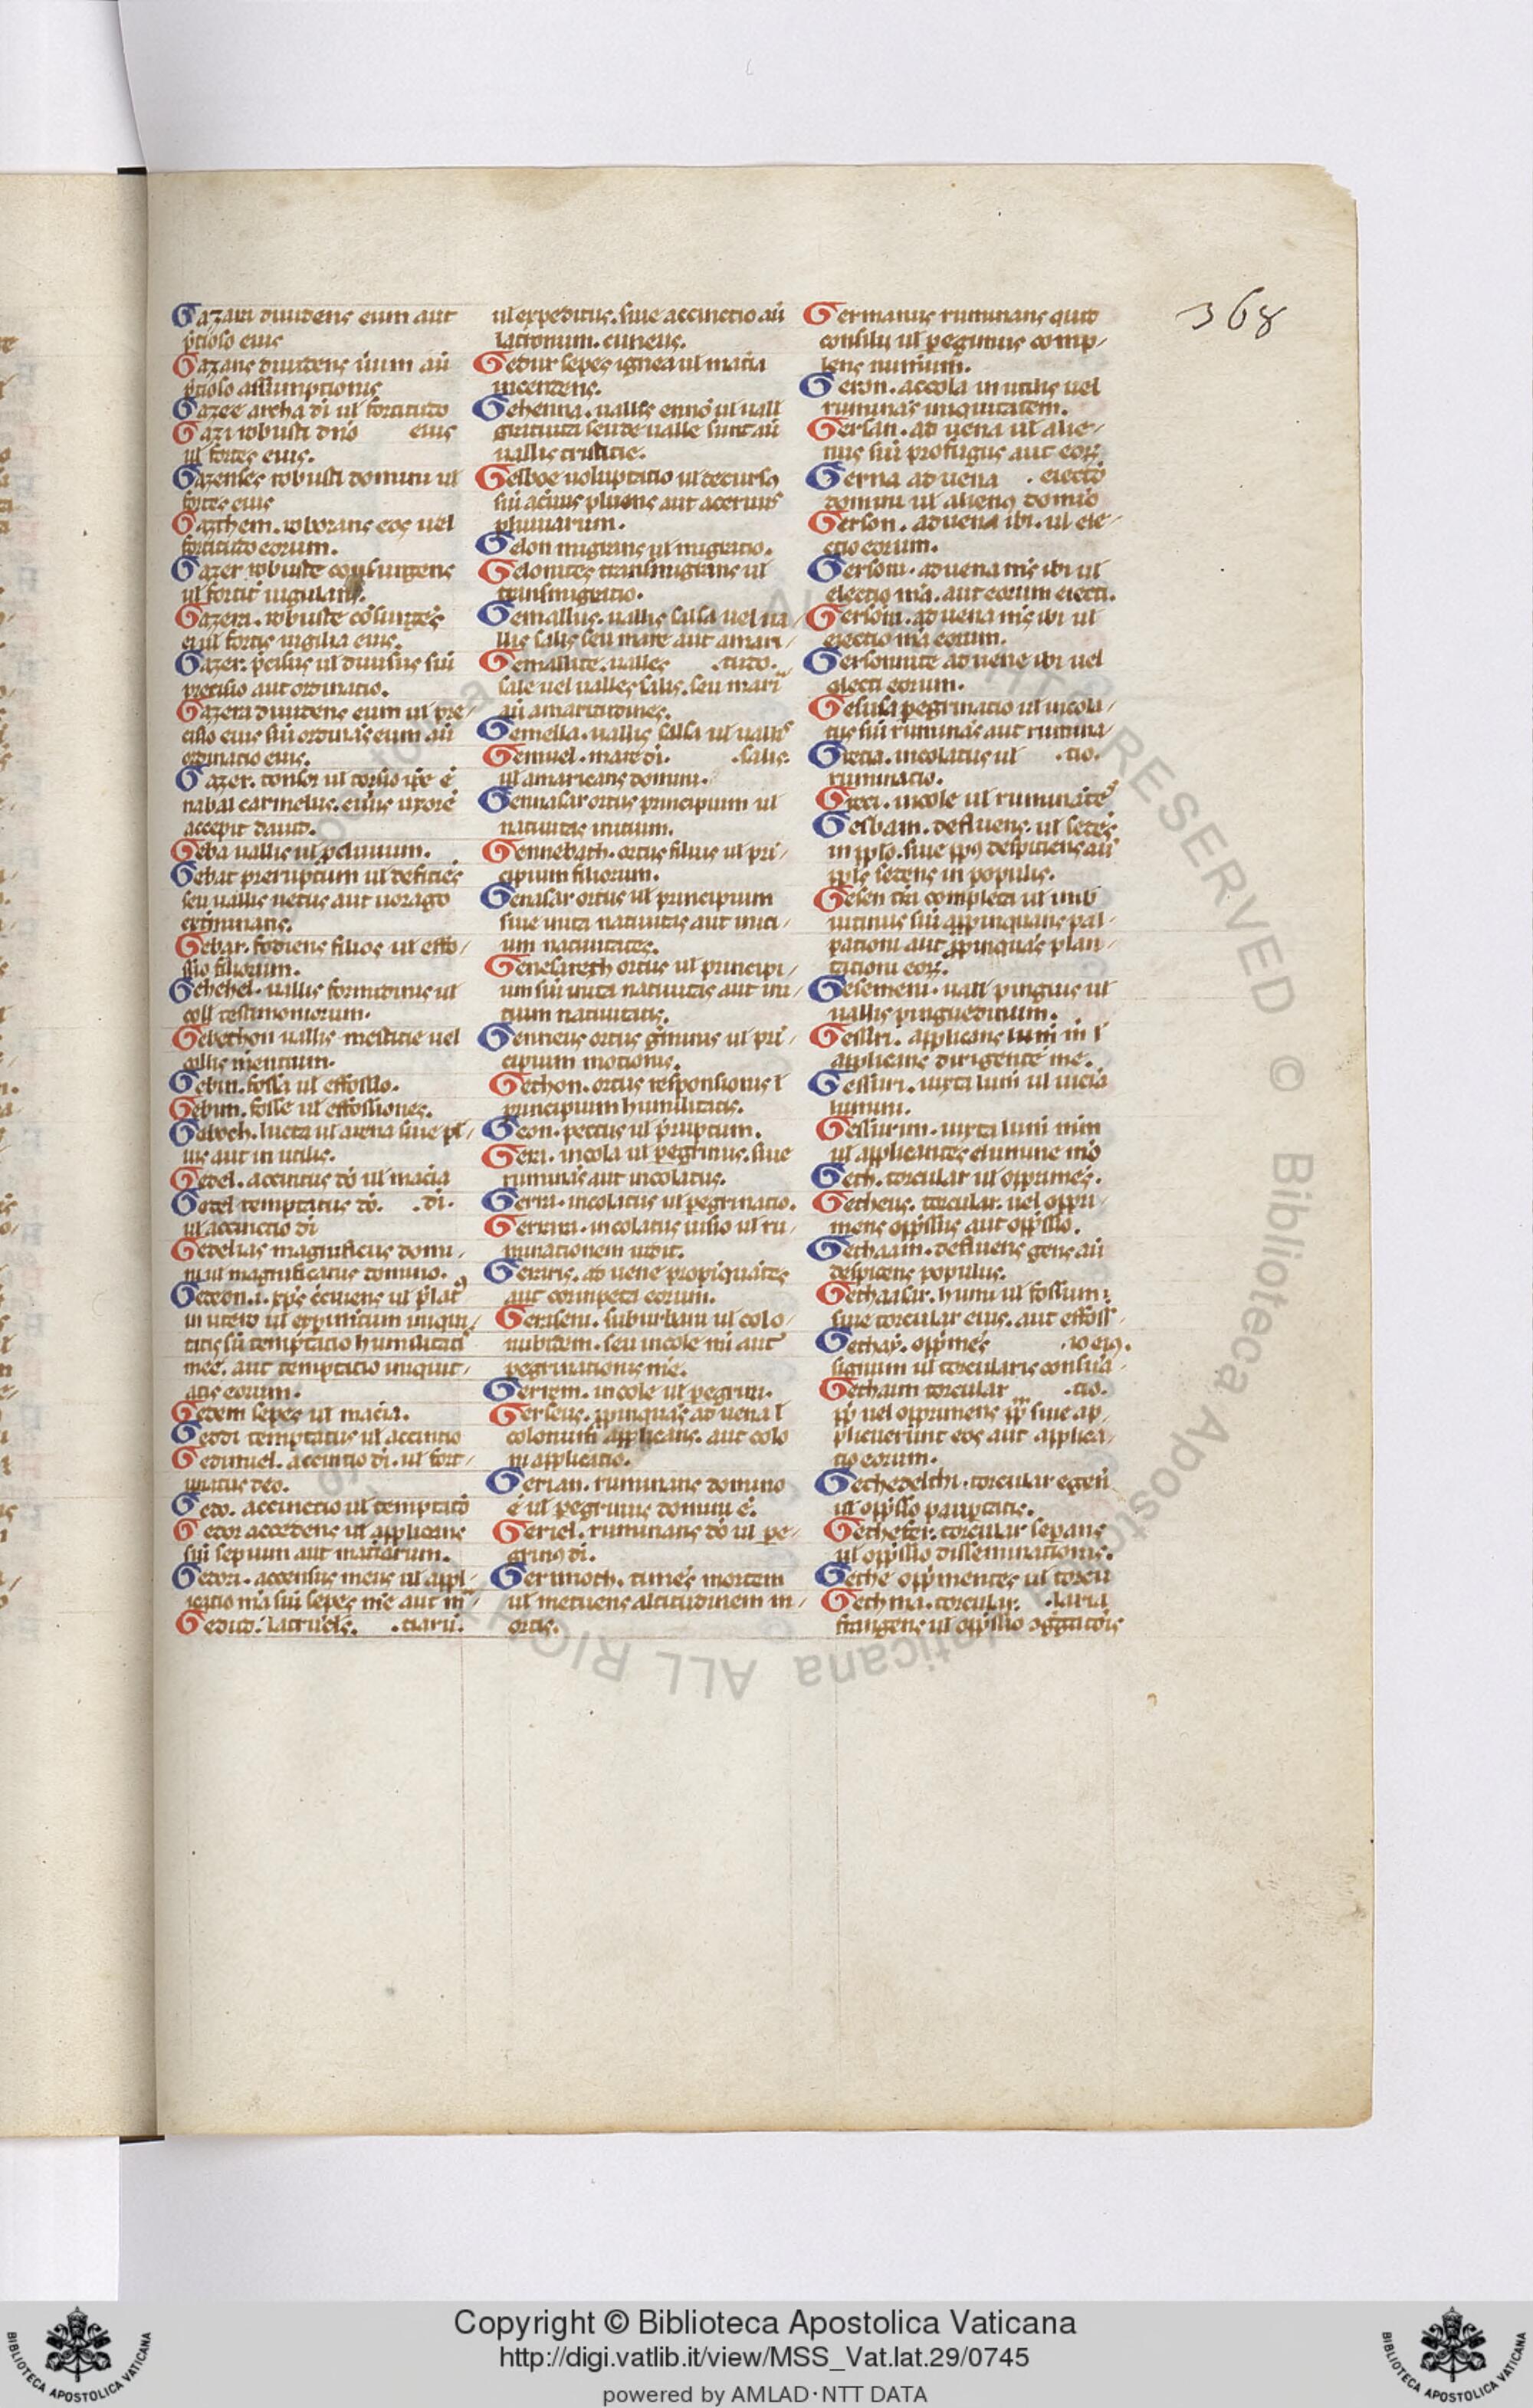 368
Gazari diuidens eum aut
p̄cisio eius
Gazanс diuidens
p̄cisio assumptionis
Gazee archa di ul fortitudo
Gazi robusti dño eius
ul fortes eius.
Gazenses robusti domini ul
fortes eius
Gazrhem. roborans eos uel
fortitudo eorum.
Gazer robuste consurgens
ul fortit̄ uigilans.
Gazera. robuste cōsurgēs
ei ul fortis uigilia eius.
Gazer. p̄cisus ul diuisus siū
precisio aut ordinatio.
Gazera diuidens eum ul pre/
cisio eius siū ordinās eum aū
ordinatio eius.
Gazer. tonsor ul tonsio ip̄e ē
nabal carmelus. cuius uxorē
accepit dauid.
Geba uallis ul peluium.
Gebat preruptum ul deficiēs
seu uallis uetus aut uorago
Gebar. fodiens filios ul effo/
ssio filiorum.
Gehehel. uallis formidinis ul
coll testimoniorum.
Gebethon uallis mesticie uel
collis mentium.
Gebin. fossa ul effossio.
Gebim. fosse ul effossiones.
Geboch. lucta ul arena siue pl/
uis aut in utilis.
Gedel. accintus dō ul macia
Gotel temptatus dō. .di.
ul accinctio di
Gedelias magnificus domi/
ni ul magnificatus domino.
in utero ul expimtum iniqui/
tatis sū temptatio humilitati
mee. aut temptatio iniquit/
atis eorum.
Gedem sepes ul macia.
Geddi temptatus ul accintio
Gedinuel. accintio di. ul fort/
unatus deo.
Gedo. accinctio ul temptatō
Gedor accedens ul applicans
siū sepium aut maciarum.
Gedori. accensus meus ul appl/
icatio m̄a siū sepes m̄e aut m̄/
Gedud. latruels. .ciarū.
ul expeditus. siue accinctio aū
latronum. cuneus.
Gedur sepes ignea ul macia
incendens.
Gehenna. uallis ennō ul uall
gratuita seu de ualle sunt aū
uallis tristicie.
Gelboe uolupatio ul decursꝰ
siū aciuus pluens aut aceruus
pluuiarum.
Gelon migrans ul migratio.
Gelonites transmigrans ul
transmigratio.
Gemallus. uallis salsa uel ua/
llis salis seu mare aut amari/
Gemallite. ualles .tudo.
sale uel ualles salis. seu mari
aū amaritudines.
Gemella. uallis salsa ul uallis
Gemuel. mare di. .salis.
ul amaricans domini.
Gennasar ortus principium ul
natiuitatis initium.
Gennebath. ortus filius ul pri/
cipium filiorum.
Genasar ortus ul principium
siue uita natiuitatis aut inici/
um natiuitates.
Genesareth ortus ul principi/
um siū uita natiuitatis aut ini/
tium natiuitatis.
Genneus ortus gminus ul pri/
cipium motionis.
Gethon. ortus responsionis l̄
principium humilitatis.
Geon. pectus ul p̄ruptum.
Gera. incola ul pegrinus. siue
ruminās aut incolatus.
Gerra. incolatus ul pegrinatio.
Gerara. incolatus uisio ul ru/
minationem uidit.
Geraris. ad uene propiquātes
aut competa eorum.
Gerasem. suburbani ul colo/
nubitem. seu incole mi aut
pegrinationis m̄e.
Geriem. incole ul pegrini.
Gerseus. ꝓpinquās ad uena l̄
colonum applicans. aut colo
ni applicatio.
Gerian. ruminans domino
ē ul pegrinus domini ē.
Geriel. ruminans dō ul pe/
grinꝰ di.
Gerimoth. timēs mortem
ul metuens altitudinem m/
ortis.
Germanus ruminans quid
consilii ul pegrinus comp/
lens nimium.
Geron. accola in utilis uel
ruminās iniquitatem.
Gersan. ad uena ul alie/
nus siū profugus aut eorꝝ
Gerna ad uena .eiectō
domini ul alienꝰ domiō
Gerson. aduena ibi. ul eie/
ctio eorum.
Gersom. aduena nis ibi ul
electio m̄a. aut eorum eiecti.
Gersoni. aduena nis ibi ul
eiectio m̄a eorum.
Gersonnite aduene ibi uel
eiecti eorum.
Gesula pegrinatio ul incola/
tus siū ruminās aut rumina/
Getcia. incolatus ul .tio.
ruminatio.
Getci. incole ul ruminātes
Gesbam. defluens. ul sedēs
in ip̄so. siue ip̄ꝰ despiciens aū
ip̄is sedens in populis.
Gesen tra completa ul imb
uicinus siū appinquans pal/
pationi aut ꝓpinquās plan/
tationi eorꝝ.
Gesemeni. uall pinguis ul
uallis pinguedinum.
Gessri. applicans lum̄ in l̄
applicans dirigente me.
Gessuri. iuxta lum̄ ul uicia
lumini.
Gessurim. iuxta lum̄ mim
ul applicantes elumine mō
Geth. torcular ul opprimēs.
Getheus. torcular. uel oppri/
mens opp̄ssus aut opp̄ssio.
Gethaam. defluens gens aū
despiciens populus.
Gethaasar. humi ul fossum ;
siue torcular eius. aut effoss/
Gethay. oppimēs .io eiꝰ.
signum ul torcularis consūa/
Gethaim torcular .tio.
ip̄ uel opprimens ip̄ siue ap/
plicuerunt eos aut applica/
tio eorum.
Gethedelchi. torcular egeni
ul opp̄ssio paupertatis.
Gethefer. torcular sepans
ul opp̄ssio disseminationis.
Gethe oppimentes ul torcu
Gethma. torcular. .laria
frangens ul opp̄ssio
Copyright © Biblioteca Apostolica Vaticana
http://digi.vatlib.it/view/MSS_Vat.lat.29/0745
powered by AMLAD·NTT DATA
BIBLIOTECA APOSTOLICA VATICANA
BIBLIOTECA APOSTOLICA VATICANA
© Biblioteca Apostolica Vaticana ALL RIGHTS RESERVED